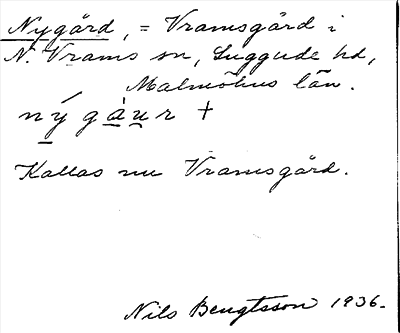 Nygård, = Vramsgård i
N. Vrams sn, Luggude hd,
Malmöhus län.
ný gàu̲r +
Kallas nu Vramsgård.
Nils Bengtsson 1936.